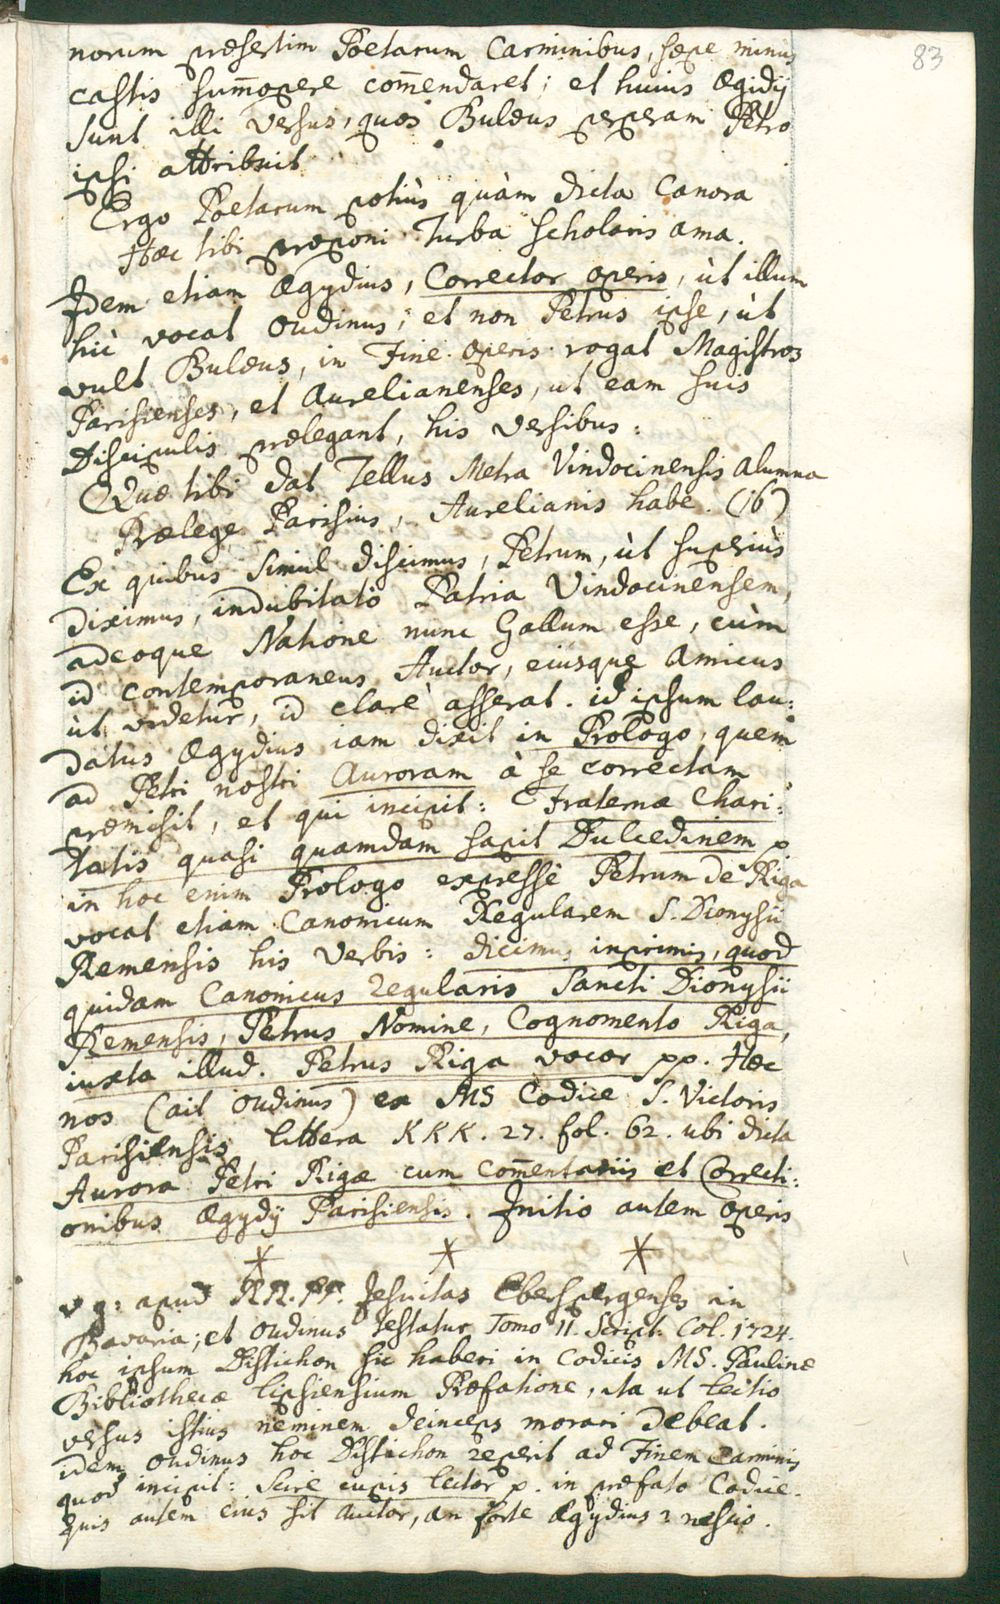 83
norum præsertim Poetarum Carminibus, sæpe minus
castis sum̄opere com̄endaret; et huius Ægidÿ
sunt illi versus, quos Bulæus perperam Petro
ipsi attribuit.
Ergo Poetarum potiùs quàm dicta Canora
Hæc tibi præponi Turba scholaris ama.
Idem etiam Ægydius, Corrector operis, ùt illum
hìc vocat Oudinus; et non Petrus ipse, ùt
vult Bulæus, in Fine operis rogat Magistros
Parisienses, et Aurelianenses, ut eam suis
Discipulis prælegant, his versibus:
Quæ tibi dat Tellus Metra Vindocinensis alumna
Prælege Parisius, Aurelianis habe. (16)
Ex quibus simul discimus, Petrum, ùt superiùs
diximus, indubitatò Patria Vindocinensem,
adeoque Natione nunc Gallum esse, cùm
id contemporaneus Auctor, eiusque Amicus
ùt videtur, id clarè asserat. id ipsum lau:
datus Ægydius iam dixit in Prologo, quem
ad Petri nostri Auroram à se correctam
præmisit, et qui incipit: Fraternæ Chari:
tatis quasi quamdam sapit Dulcedinem p
in hoc enim Prologo expressè Petrum de Riga
vocat etiam Canonicum Regularem S. Dionysii
Remensis his verbis: dicimus inprimis, quod
quidam Canonicus regularis Sancti Dionysii
Remensis, Petrus Nomine, Cognomento Riga,
iuxta illud. Petrus Riga vocor pp. Hæc
nos (ait Oudinus) ex MS Codice S. Victoris
Parisiensis littera KKK. 27. fol. 62. ubi dicta
Aurora Petri Rigæ cum Com̄entariis et Correcti:
onibus Ægydÿ Parisiensis. Initio autem operis
* * *
v g: apud RR. PP. Jesuitas Eberspergenses in
Bavaria; et Oudinus testatur Tomo II. Script. Col. 1724.
hoc ipsum Distichon sic haberi in Codicis MS. Paulinæ
Bibliothecæ Lipsiensium Præfatione, ita ut lectio
versus istius neminem deinceps morari debeat.
idem Oudinus hoc Distichon reperit ad Finem Carminis
quod incipit: Scire cupis lector p. in præfato Codice.
quis autem eius sit auctor, an forte Ægydius? nescio.